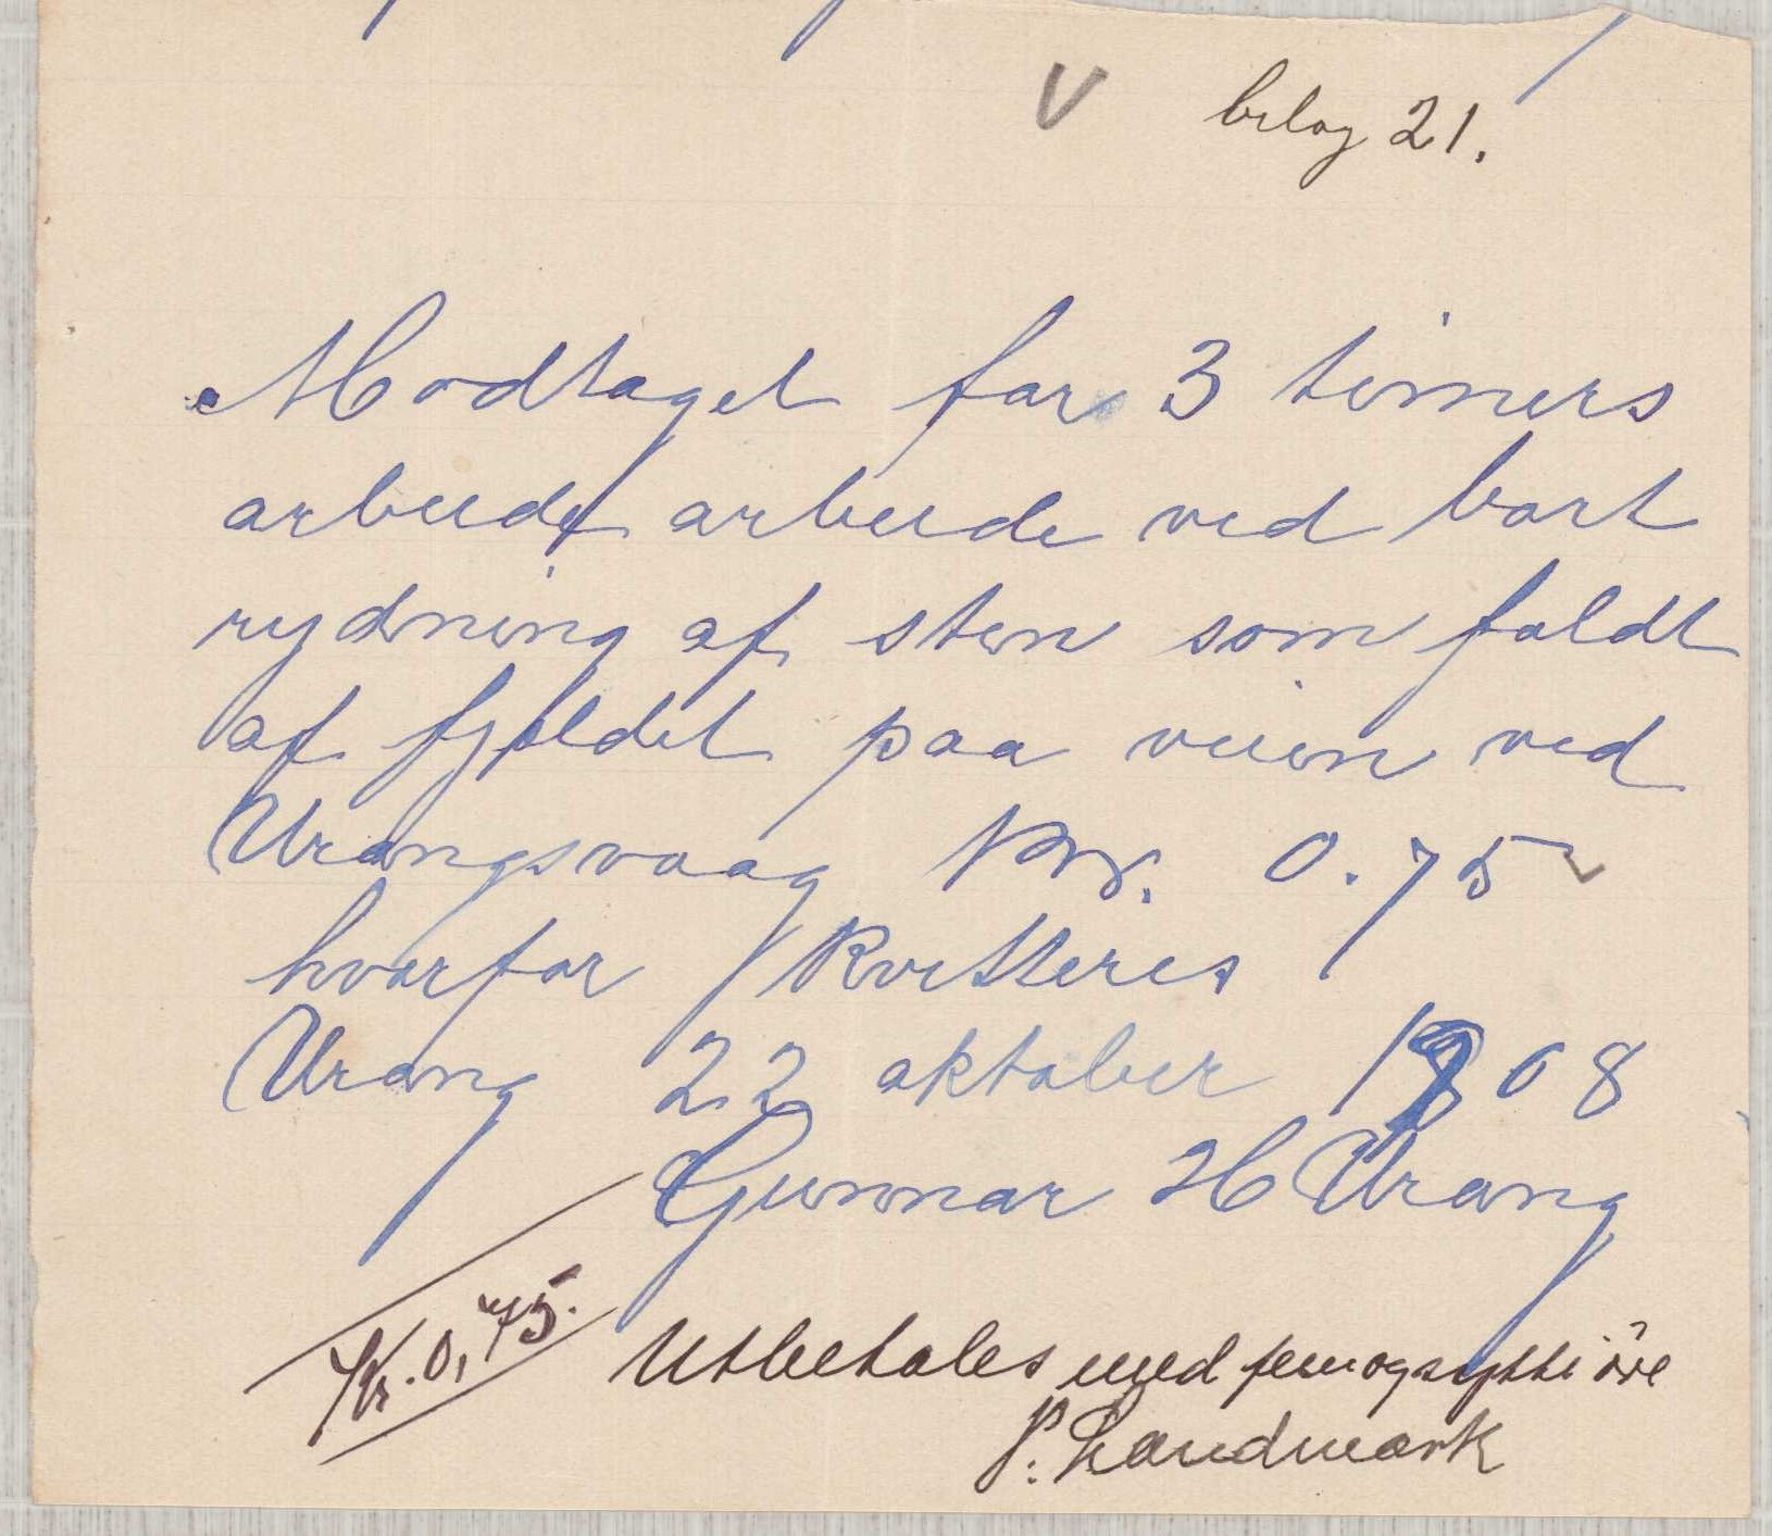 V bilag 21.
Modtaget for 3 timers
arbeide arbeide ved bort
rydning af sten som faldt
af fjeldet paa veien ved
Urangsvaag Kr. 0.75
hvorfor kvitteres
Urang 22 oktober 1908
Gunnar H Urang
Kr. 0,75. Utbetales med femogsytti øre
P. Landmark